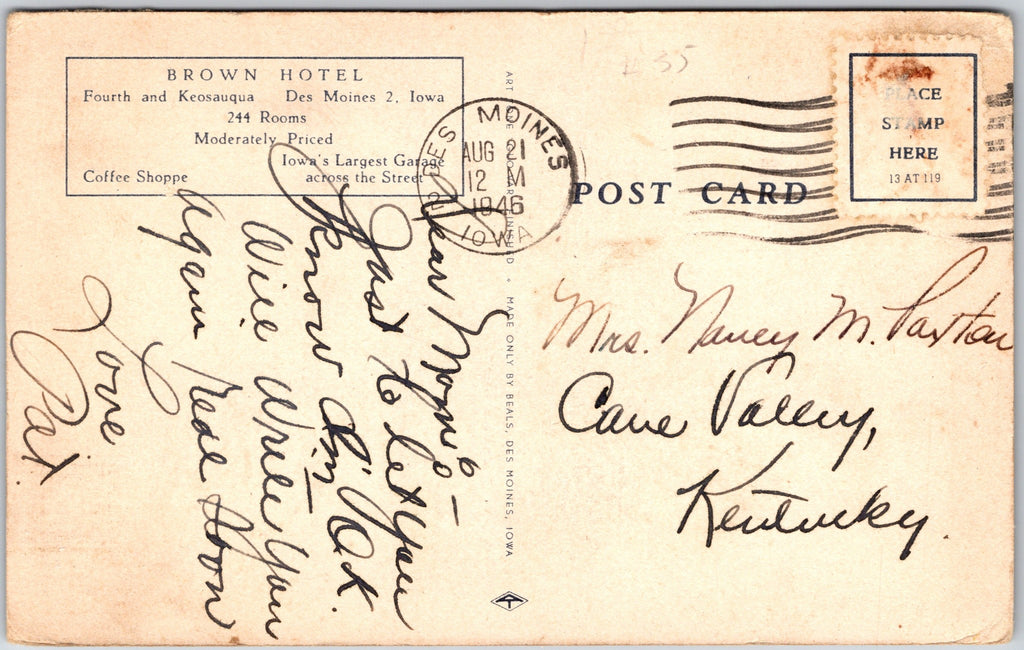 BROWN HOTEL
Fourth and Keosauqua Des Moines 2, Iowa
244 Rooms
Moderately Priced
Iowa's Largest Garage
Coffee Shoppe across the Street
DES MOINES
AUG 21
12 M
1946
IOWA
35
POST CARD
PLACE
STAMP
HERE
13 AT 119
MADE ONLY BY BEALS, DES MOINES, IOWA
Dear
Just to let you
Know I'm O.K.
Will write you
again real soon
Love
Pat.
Mrs. Nancy M. Paxton
Cane Valley,
Kentucky.